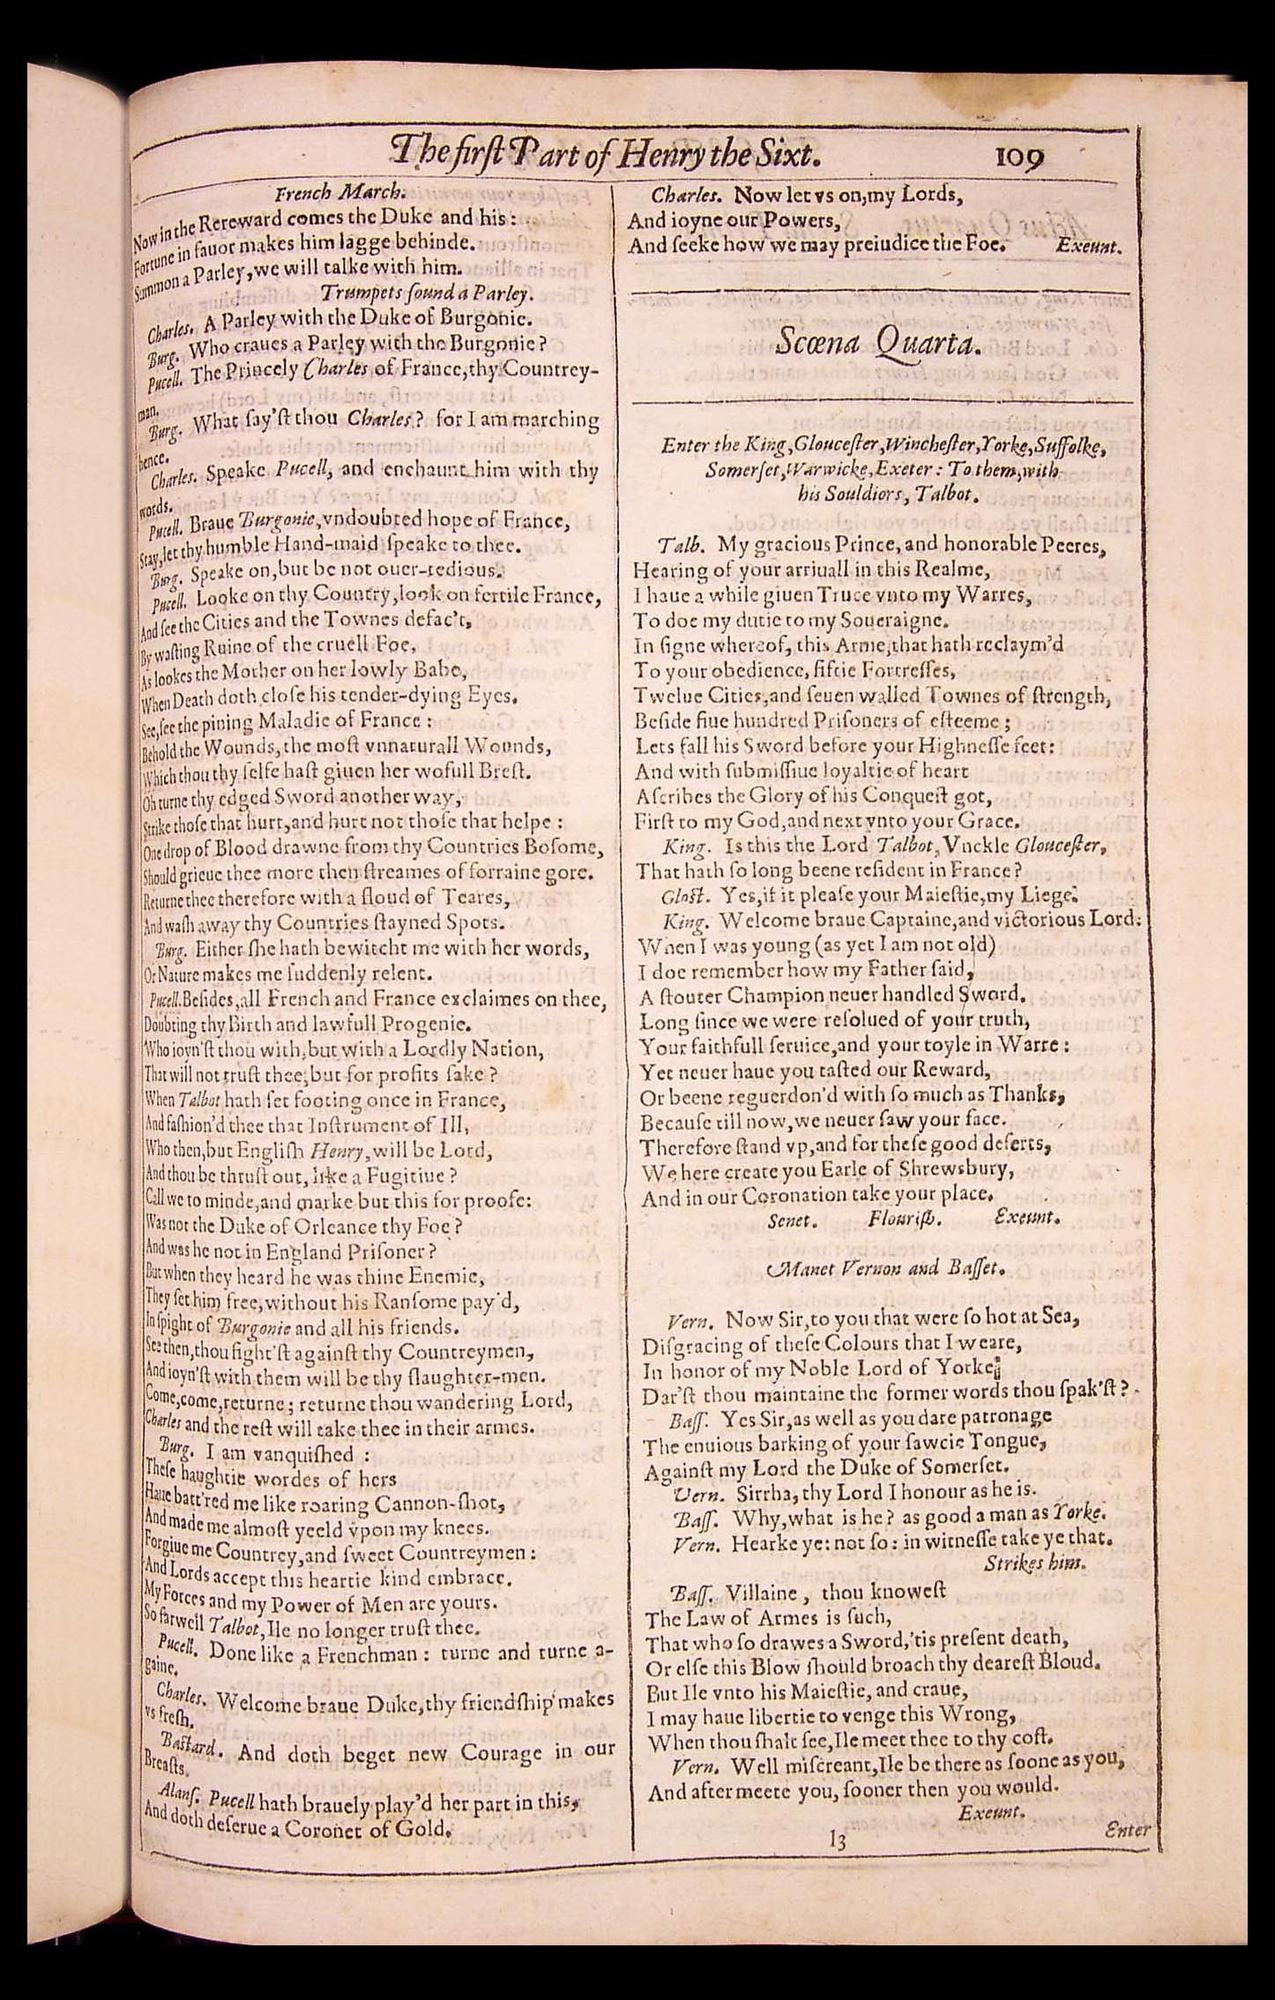 The firſt Part of Henry the Sixt. 109
French March.
Now in the Rereward comes the Duke and his:
Fortune in fauor makes him lagge behinde.
Summon a Parley, we will talke with him.
Trumpets ſound a Parley.
Charles. A Parley with the Duke of Burgonie.
Burg. Who craues a Parley with the Burgonie?
Pucell. The Princely Charles of France, thy Countrey-
man.
Burg. What ſay'ſt thou Charles? for I am marching
hence.
Charles. Speake Pucell, and enchaunt him with thy
words.
Pucell. Braue Burgonie, vndoubted hope of France,
Stay, let thy humble Hand-maid ſpeake to thee.
Burg. Speake on, but be not ouer-tedious.
Pucell. Looke on thy Country, look on fertile France,
And ſee the Cities and the Townes defac't,
By waſting Ruine of the cruell Foe,
As lookes the Mother on her lowly Babe,
When Death doth cloſe his tender-dying Eyes.
See, ſee the pining Maladie of France:
Behold the Wounds, the moſt vnnaturall Wounds,
Which thou thy ſelfe haſt giuen her wofull Breſt.
Oh turne thy edged Sword another way,
Strike thoſe that hurt, and hurt not thoſe that helpe:
One drop of Blood drawne from thy Countries Boſome,
Should grieue thee more then ſtreames of forraine gore.
Returne thee therefore with a floud of Teares,
And waſh away thy Countries ſtayned Spots.
Burg. Either ſhe hath bewitcht me with her words,
Or Nature makes me ſuddenly relent.
Pucell. Beſides, all French and France exclaimes on thee,
Doubting thy Birth and lawfull Progenie.
Who ioyn'ſt thou with, but with a Lordly Nation,
That will not truſt thee, but for profits ſake?
When Talbot hath ſet footing once in France,
And faſhion'd thee that Inſtrument of Ill,
Who then, but Engliſh Henry, will be Lord,
And thou be thruſt out, like a Fugitiue?
Call we to minde, and marke but this for proofe:
Was not the Duke of Orleance thy Foe?
And was he not in England Priſoner?
But when they heard he was thine Enemie,
They ſet him free, without his Ranſome pay'd,
In ſpight of Burgonie and all his friends.
See then, thou fight'ſt againſt thy Countreymen,
And ioyn'ſt with them will be thy ſlaughter-men.
Come, come, returne; returne thou wandering Lord,
Charles and the reſt will take thee in their armes.
Burg. I am vanquiſhed:
Theſe haughtie wordes of hers
Haue batt'red me like roaring Cannon-ſhot,
And made me almoſt yeeld vpon my knees.
Forgiue me Countrey, and ſweet Countreymen:
And Lords accept this heartie kind embrace.
My Forces and my Power of Men are yours.
So farwell Talbot, Ile no longer truſt thee.
Pucell. Done like a Frenchman: turne and turne a-
gaine.
Charles. Welcome braue Duke, thy friendſhip makes
vs freſh.
Baſtard. And doth beget new Courage in our
Breaſts.
Alanſ. Pucell hath brauely play'd her part in this,
And doth deſerue a Coronet of Gold.
Charles. Now let vs on, my Lords,
And ioyne our Powers,
And ſeeke how we may preiudice the Foe. Exeunt.
Scœna Quarta.
Enter the King, Glouceſter, Wincheſter, Yorke, Suffolke,
Somerſet, Warwicke, Exeter: To them, with
his Souldiors, Talbot.
Talb. My gracious Prince, and honorable Peeres,
Hearing of your arriuall in this Realme,
I haue a while giuen Truce vnto my Warres,
To doe my dutie to my Soueraigne.
In ſigne whereof, this Arme, that hath reclaym'd
To your obedience, fiftie Fortreſſes,
Twelue Cities, and ſeuen walled Townes of ſtrength,
Beſide fiue hundred Priſoners of eſteeme;
Lets fall his Sword before your Highneſſe feet:
And with ſubmiſſiue loyaltie of heart
Aſcribes the Glory of his Conqueſt got,
Firſt to my God, and next vnto your Grace.
King. Is this the Lord Talbot, Vnckle Glouceſter,
That hath ſo long beene reſident in France?
Gloſt. Yes, if it pleaſe your Maieſtie, my Liege.
King. Welcome braue Captaine, and victorious Lord.
When I was young (as yet I am not old)
I doe remember how my Father ſaid,
A ſtouter Champion neuer handled Sword.
Long ſince we were reſolued of your truth,
Your faithfull ſeruice, and your toyle in Warre:
Yet neuer haue you taſted our Reward,
Or beene reguerdon'd with ſo much as Thanks,
Becauſe till now, we neuer ſaw your face.
Therefore ſtand vp, and for theſe good deſerts,
We here create you Earle of Shrewsbury,
And in our Coronation take your place.
Senet. Flouriſh. Exeunt.
Manet Vernon and Baſſet.
Vern. Now Sir, to you that were ſo hot at Sea,
Diſgracing of theſe Colours that I weare,
In honor of my Noble Lord of Yorke
Dar'ſt thou maintaine the former words thou ſpak'ſt?
Baſſ. Yes Sir, as well as you dare patronage
The enuious barking of your ſawcie Tongue,
Againſt my Lord the Duke of Somerſet.
Vern. Sirrha, thy Lord I honour as he is.
Baſſ. Why, what is he? as good a man as Yorke.
Vern. Hearke ye: not ſo: in witneſſe take ye that.
Strikes him.
Baſſ. Villaine, thou knoweſt
The Law of Armes is ſuch,
That who ſo drawes a Sword, 'tis preſent death,
Or elſe this Blow ſhould broach thy deareſt Bloud.
But Ile vnto his Maieſtie, and craue,
I may haue libertie to venge this Wrong,
When thou ſhalt ſee, Ile meet thee to thy coſt.
Vern. Well miſcreant, Ile be there as ſoone as you,
And after meete you, ſooner then you would.
Exeunt.
l3 Enter